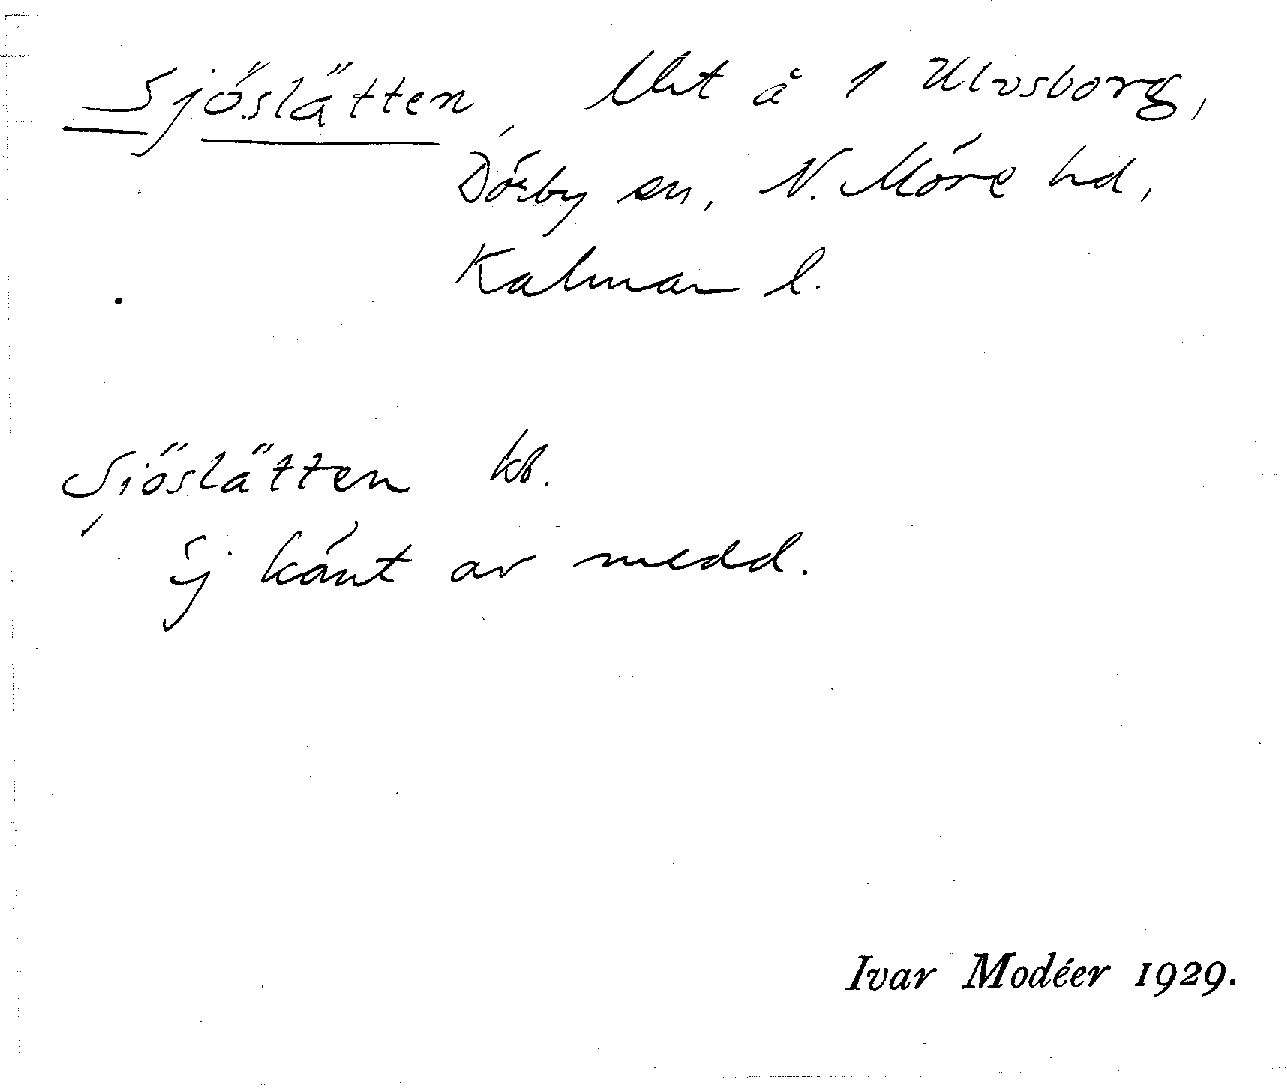 Sjöslätten, Utmt å 1 Ulvsborg,
Dörby sn, N. Möre hd,
Kalmar l.
Sjöslätten kb.
Ej känt av medd.
Ivar Modéer 1929.